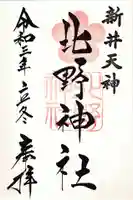 新井天神
北野神社
令和三年立冬
奉拝